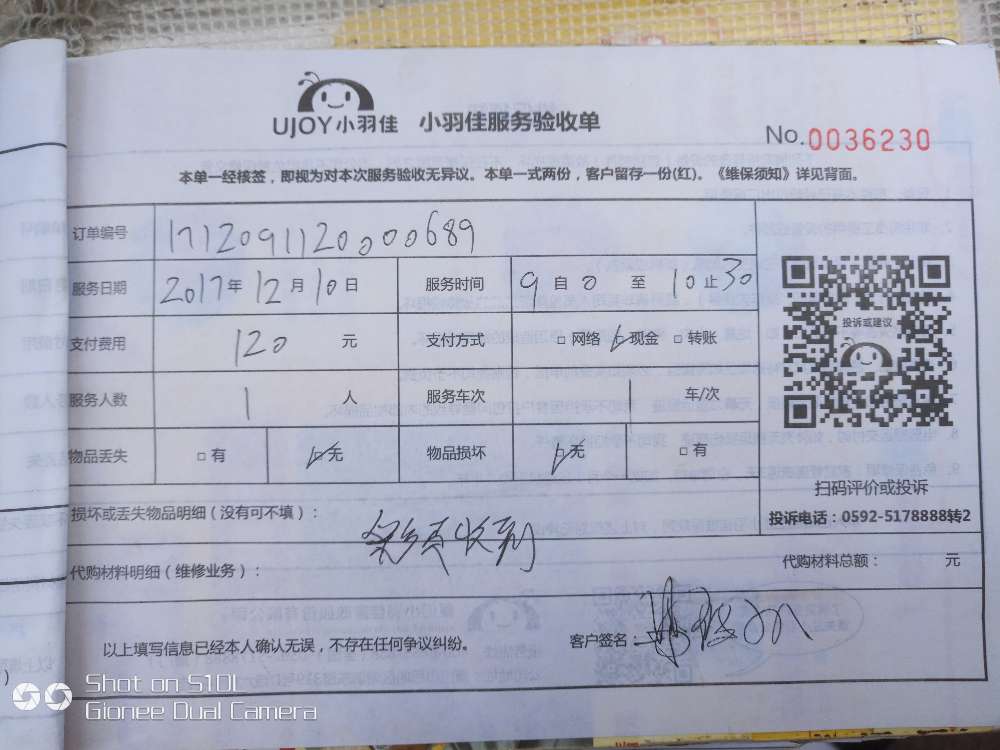 UJOY小羽佳 小羽佳服务验收单
No.0036230
本单一经核签，即视为对本次服务验收无异议。本单一式两份，客户留存一份(红)。《维保须知》详见背面。
订单编号 1712091120000689
服务日期 2017年12月10日 服务时间 9自0至10止30
支付费用 120元 支付方式 □网络 □现金 □转账
服务人数 1人 服务车次 1车/次
物品丢失 □有 □无 物品损坏 □无 □有
投诉或建议
扫码评价或投诉
投诉电话：0592-5178888转2
损坏或丢失物品明细（没有可不填）：
收到
代购材料明细（维修业务）： 代购材料总额： 元
以上填写信息已经本人确认无误，不存在任何争议纠纷。 客户签名：
Shot on S10L
Gionee Dual Camera